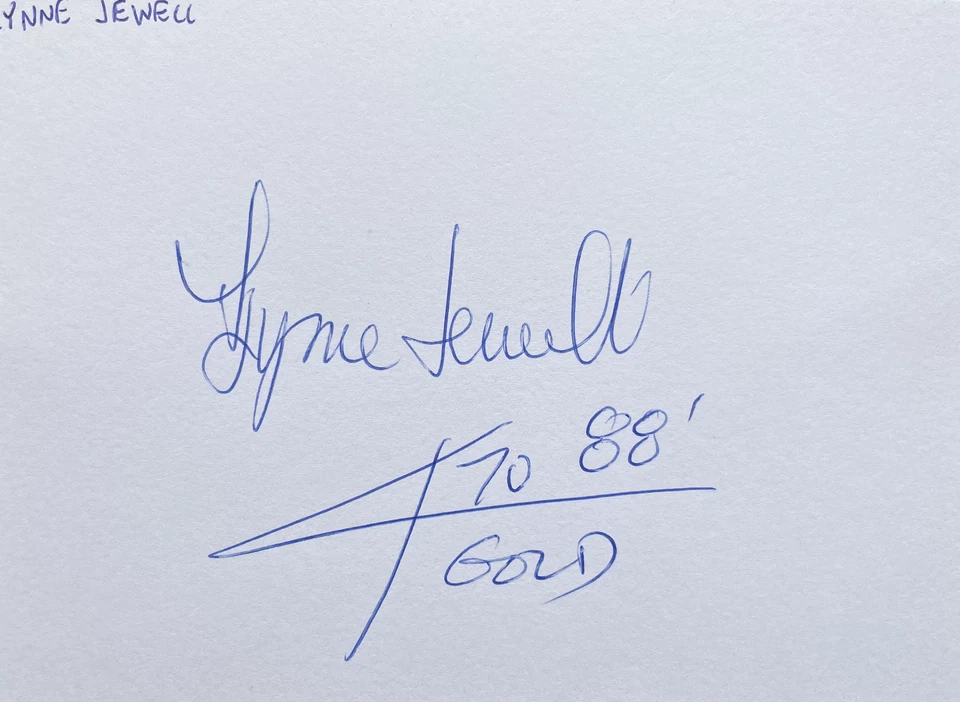 LYNNE JEWELL
Lynne Jewell
TO 88'
GOLD